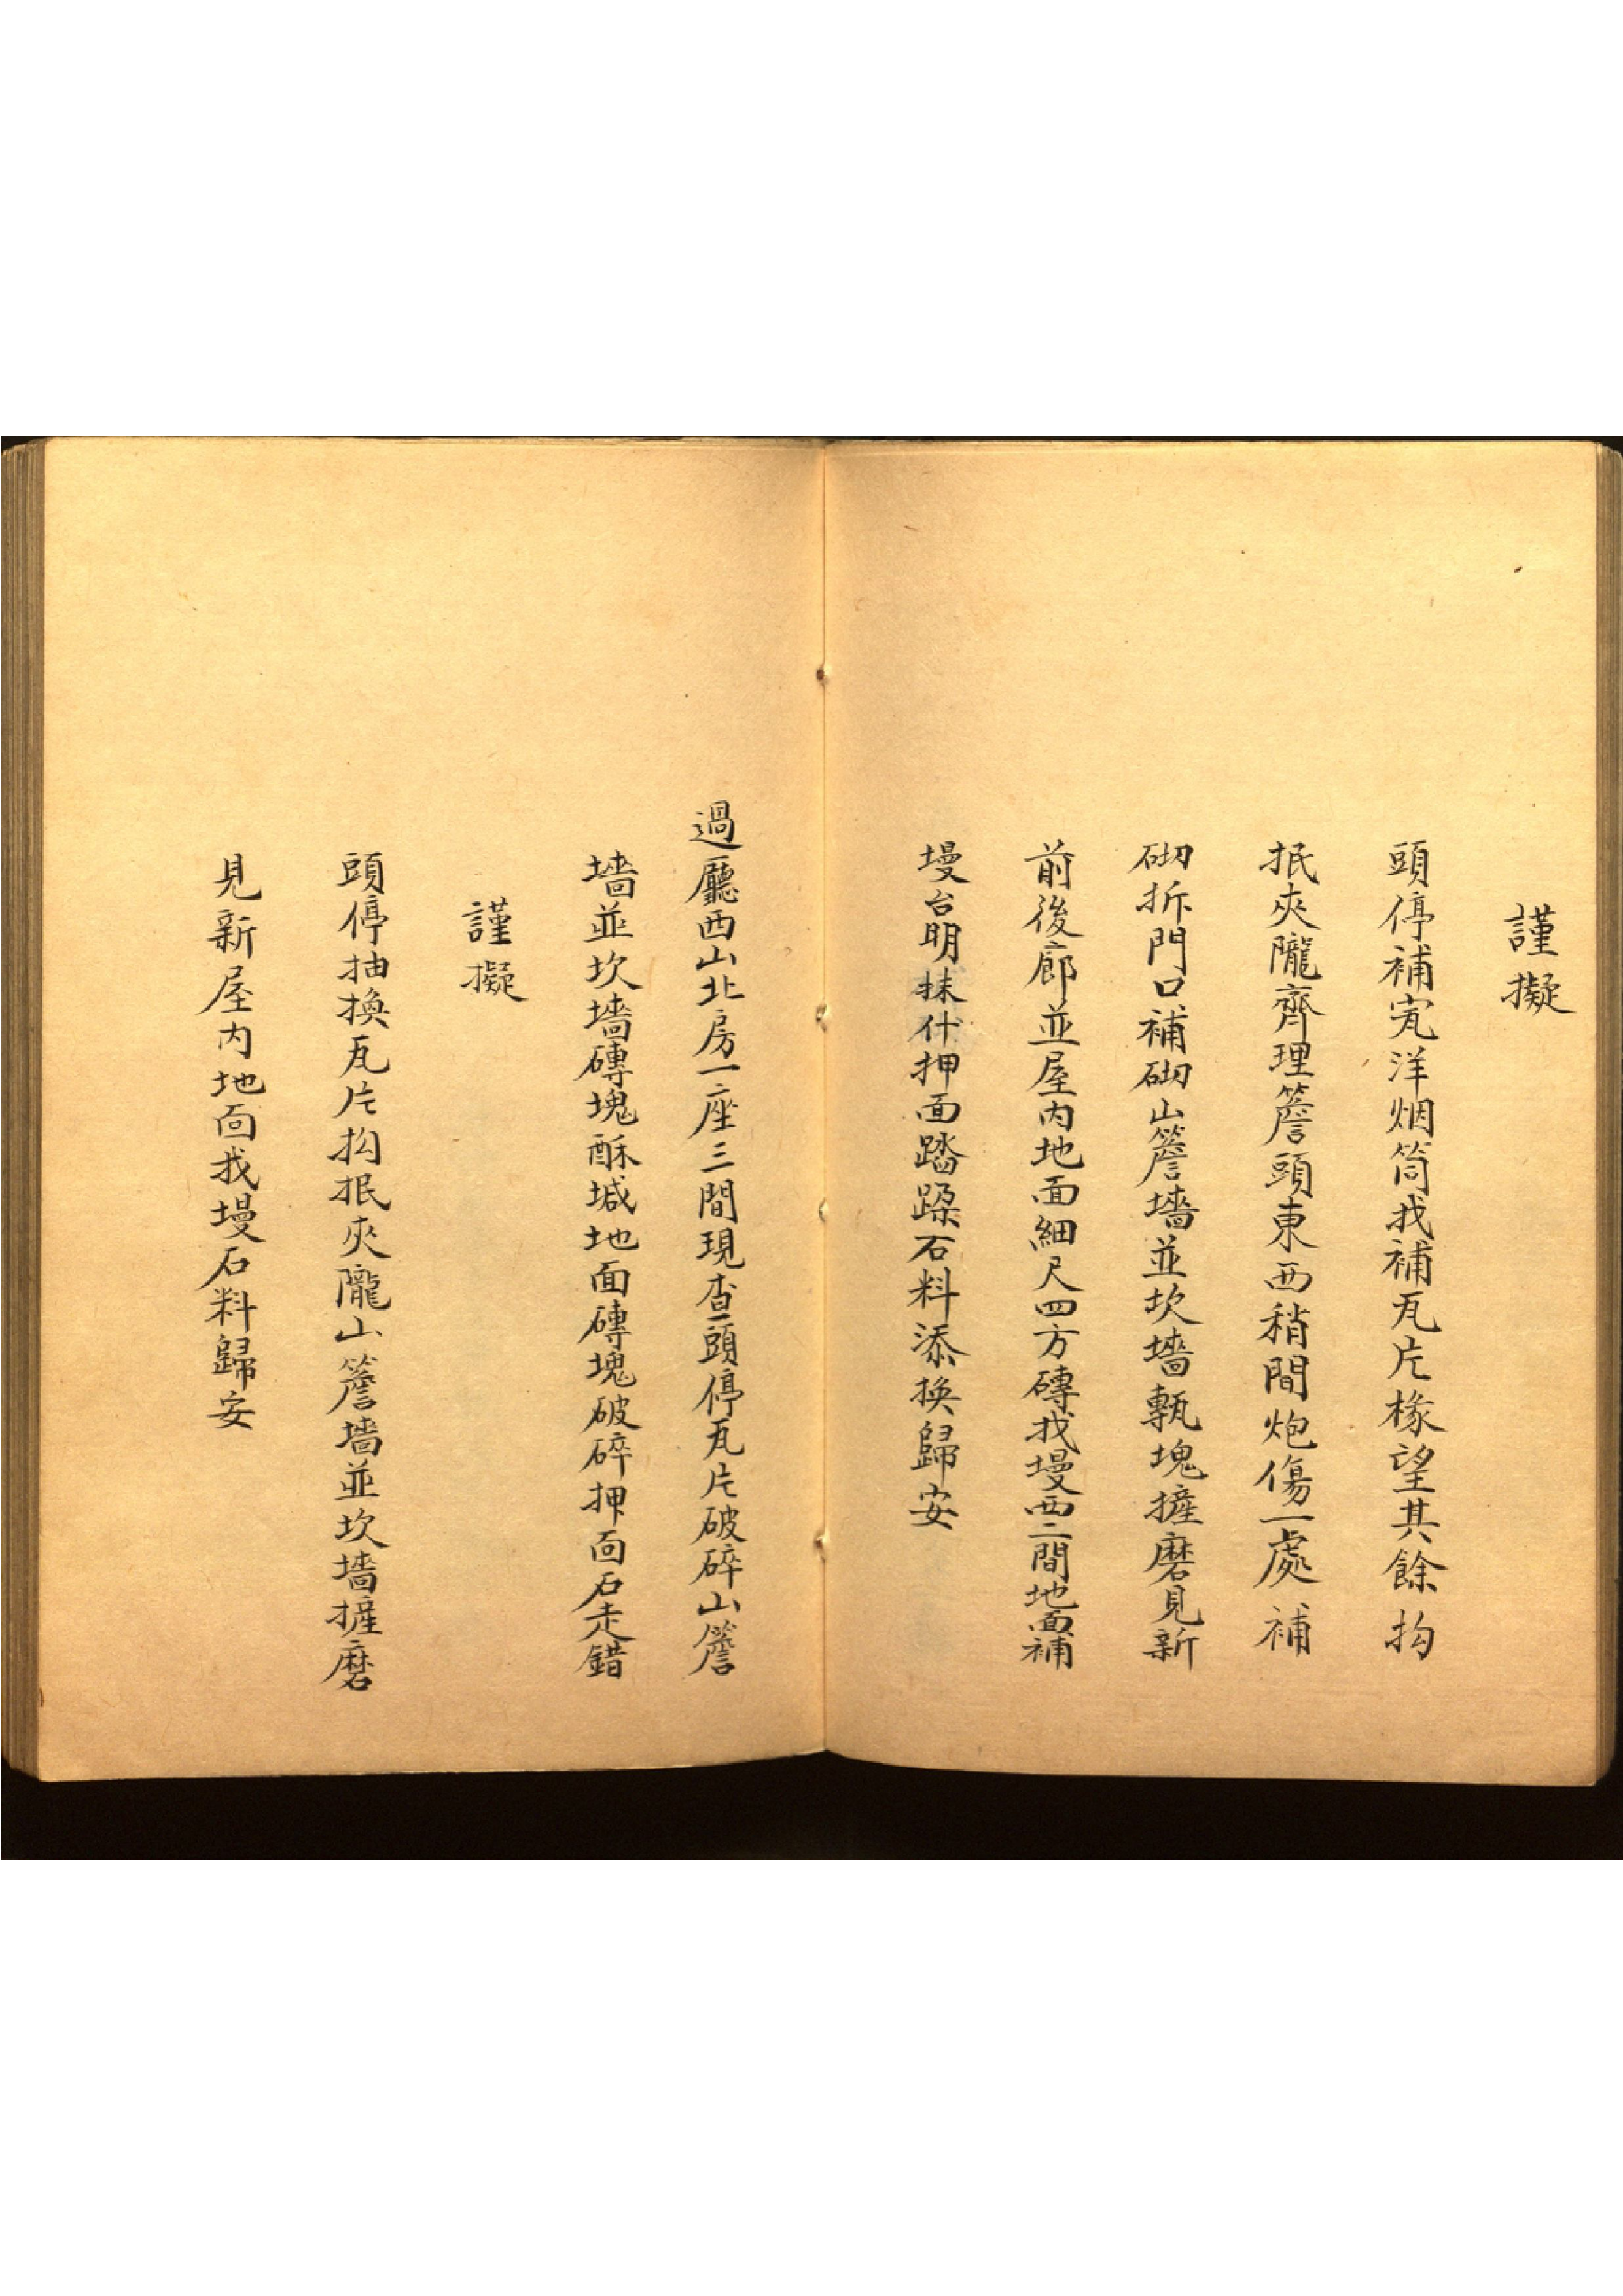 謹擬
頭停補㝮洋烟筒找補瓦片椽望其餘抅
抿夾隴齊理簷頭東西稍間炮傷一處補
砌拆門口補砌山簷墻並坎墻㼾塊摧磨見新
前後廊並屋内地面細尺四方磚找墁西二間地面補
墁台明抹什押面踏跺石料添換歸安
過廳西山北房一座三間現查頭停瓦片破碎山簷
墻並坎墻磚塊酥堿地面磚塊破碎押面石走錯
謹擬
頭停抽換瓦片抅抿夾隴山簷墻並坎墻摧磨
見新屋内地面找墁石料歸安